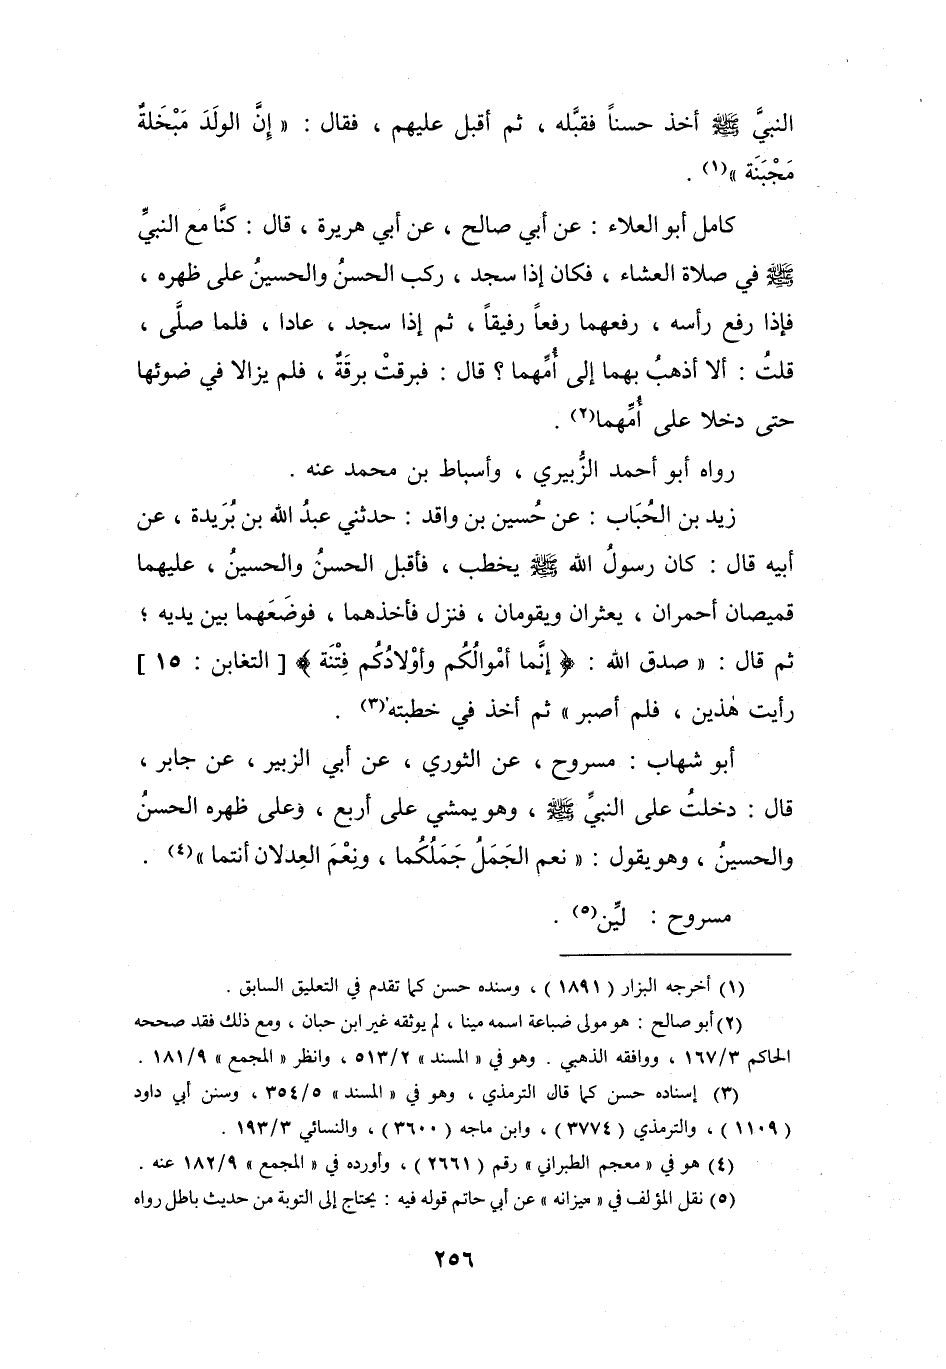 النبيَّ ﷺ أخذ حسناً فقبَّله ، ثم أقبل عليهم ، فقال : « إِنَّ الولَدَ مَبْخَلةٌ
مَجْبَنَة »(١) .
كامل أبو العلاء : عن أبي صالح ، عن أبي هريرة ، قال : كنَّا مع النبيِّ
ﷺ في صلاة العشاء ، فكان إذا سجد ، ركب الحسنُ والحسينُ على ظهره ،
فإذا رفع رأسه ، رفعهما رفعاً رفيقاً ، ثم إذا سجد ، عادا ، فلما صلَّى ،
قلتُ : ألا أذهبُ بهما إلى أُمِّهما ؟ قال : فبرقتْ برقَةٌ ، فلم يزالا في ضوئها
حتى دخلا على أُمِّهما(٢) .
رواه أبو أحمد الزُّبيري ، وأسباط بن محمد عنه .
زيد بن الحُبَاب : عن حُسين بن واقد : حدثني عبدُ الله بن بُرَيدة ، عن
أبيه قال : كان رسولُ الله ﷺ يخطب ، فأقبل الحسنُ والحسينُ ، عليهما
قميصان أحمران ، يعثران ويقومان ، فنزل فأخذهما ، فوضَعَهما بين يديه ؛
ثم قال : « صدق الله : ﴿ إنَّما أمْوالُكُم وأوْلادُكُم فِتْنَة ﴾ [ التغابن : ١٥ ]
رأيت هٰذين ، فلم أصبر » ثم أخذ في خطبته(٣) .
أبو شهاب : مسروح ، عن الثوري ، عن أبي الزبير ، عن جابر ،
قال : دخلتُ على النبيِّ ﷺ ، وهو يمشي على أربع ، وعلى ظهره الحسنُ
والحسينُ ، وهو يقول : « نعم الجَمَلُ جَمَلُكُما ، ونِعْمَ العِدلان أنتما »(٤) .
مسروح : ليِّن(٥) .
(١) أخرجه البزار ( ١٨٩١ ) ، وسنده حسن كما تقدم في التعليق السابق .
(٢) أبو صالح : هو مولى ضباعة اسمه مينا ، لم يوثقه غير ابن حبان ، ومع ذلك فقد صححه
الحاكم ٣/١٦٧ ، ووافقه الذهبي . وهو في « المسند » ٢/٥١٣ ، وانظر « المجمع » ٩/١٨١ .
(٣) إسناده حسن كما قال الترمذي ، وهو في « المسند » ٥/٣٥٤ ، وسنن أبي داود
( ١١٠٩ ) ، والترمذي ( ٣٧٧٤ ) ، وابن ماجه ( ٣٦٠٠ ) ، والنسائي ٣/١٩٣ .
(٤) هو في « معجم الطبراني » رقم ( ٢٦٦١ ) ، وأورده في « المجمع » ٩/١٨٢ عنه .
(٥) نقل المؤلف في « ميزانه » عن أبي حاتم قوله فيه : يحتاج إلى التوبة من حديث باطل رواه
٢٥٦